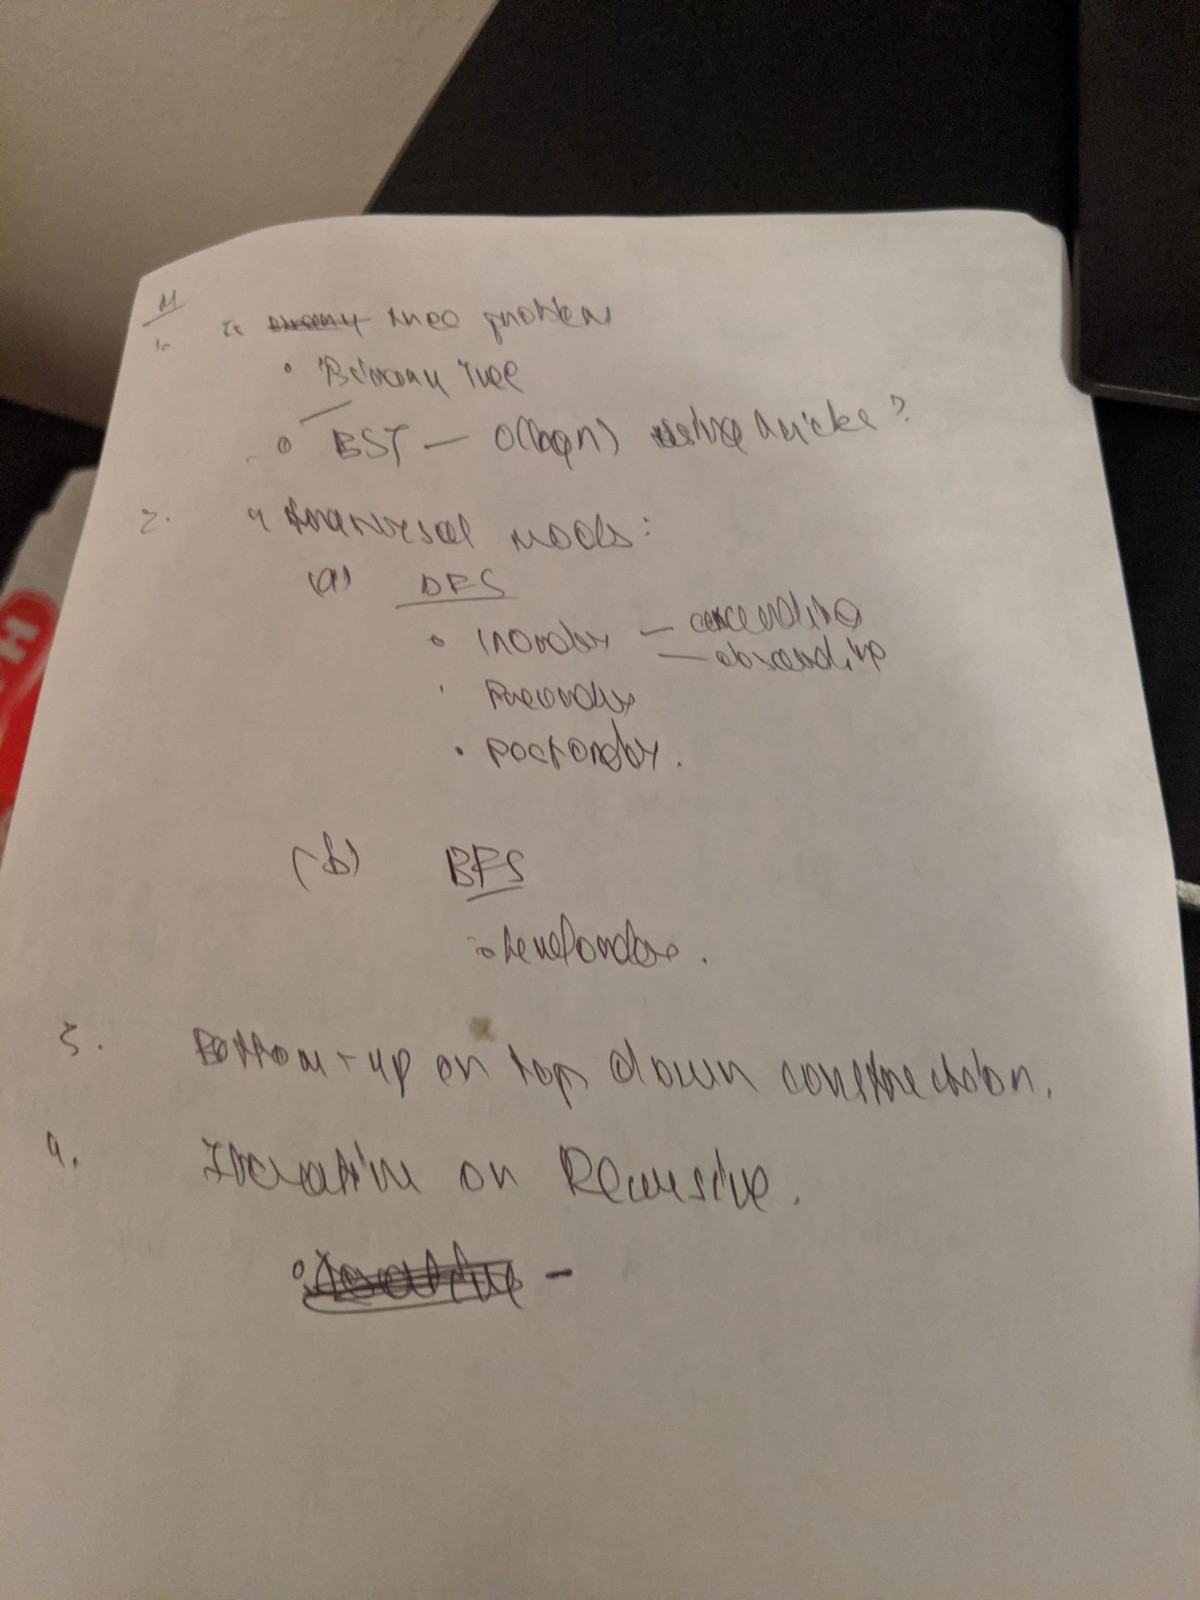 1. Is binary tree problem
• Binary Tree
• BST — O(logn) using tricks?
2. 4 traversal modes:
(a) DFS
• inorder — ascending
— descending
• Preorder
• Postorder.
(b) BFS
• levelorder.
3. Bottom-up or top down construction.
4. Iterative or Recursive.
• Iterative -